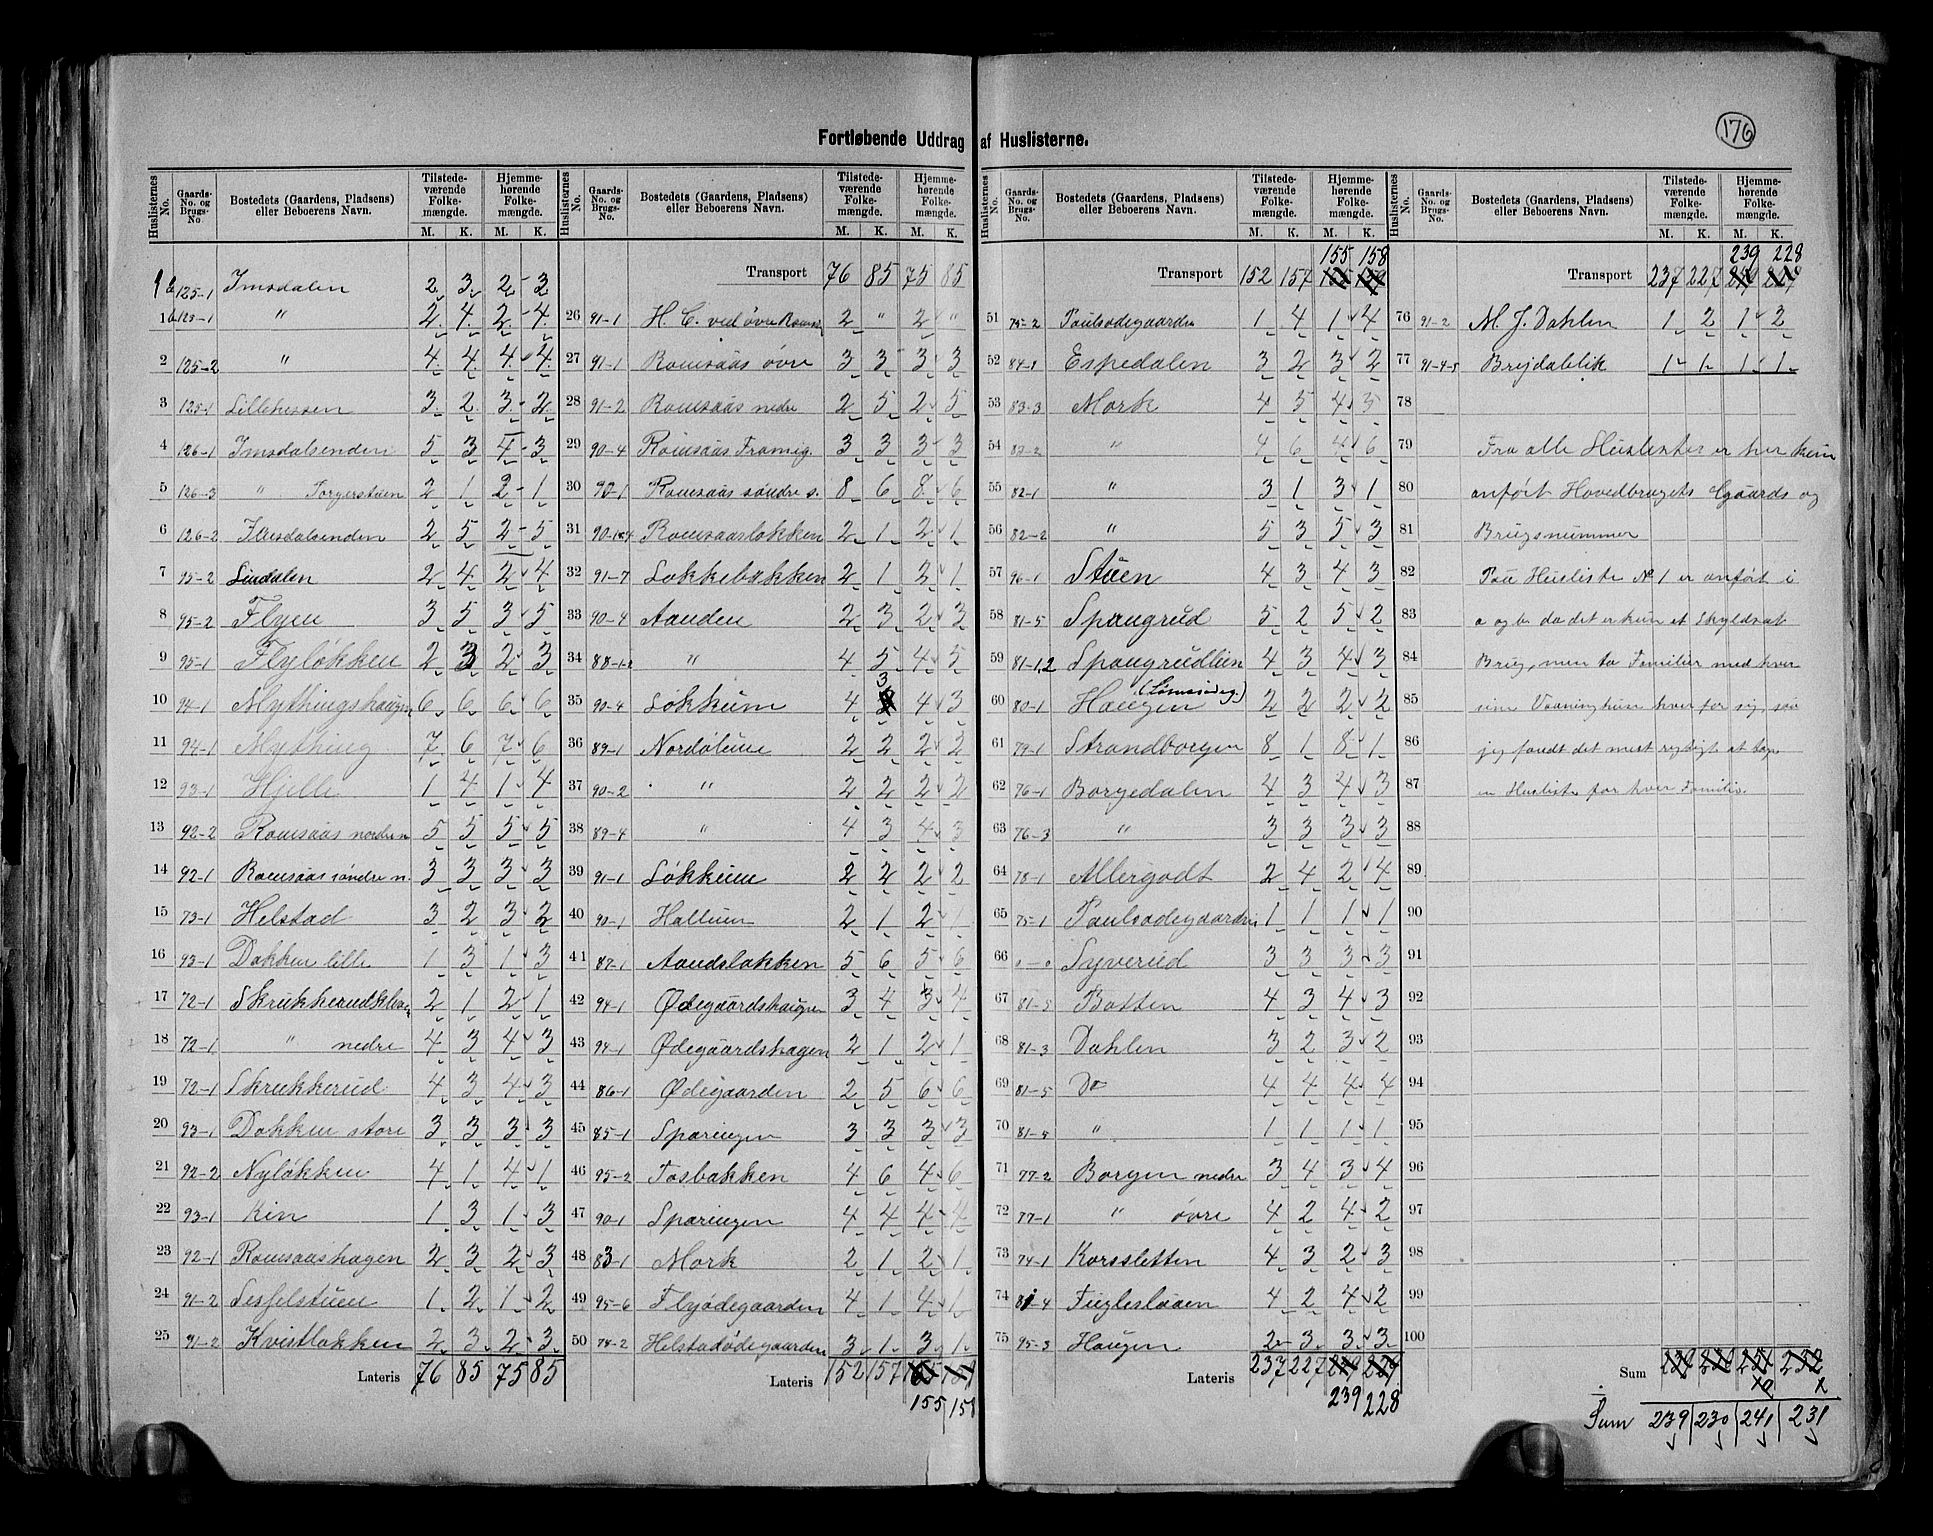 176
Fortløbende Uddrag af Huslisterne.
Huslisternes No. | Gaards-No. og Brugs-No | Bostedets (Gaardens, Pladsens) eller Beboerens Navn. | Tilstedeværende Folkemængde. M. K. | Hjemmehørende Folkemængde. M. K.
1a 125-1 Imsdalen 2 3 2 3
1b 125-1 " 2 4 2 4
2 125-2 " 4 4 4 4
3 125-1 Lillehessen 3 2 3 2
4 126-1 Imsdalsenden 5 3 4 3
5 126-3 " Torgerstuen 2 1 2 1
6 126-2 Imsdalsenden 2 5 2 5
7 95-2 Lindalen 2 4 2 4
8 95-2 Flyen 3 5 3 5
9 95-1 Flyløkken 2 3 2 3
10 94-1 Mythingshaugen 6 6 6 6
11 94-1 Mything 7 6 7 6
12 93-1 Hjelle 1 4 1 4
13 92-2 Romsaas nordre n 5 5 5 5
14 92-1 Romsaas søndre n. 3 3 3 3
15 73-1 Helstad 3 2 3 2
16 93-1 Dokken lille 1 3 1 3
17 72-1 2 1 2 1
18 72-1 " nedre 4 3 4 3
19 72-1 Skrukkerud 4 3 4 3
20 93-1 Dokken store 3 3 3 3
21 92-2 Nyløkken 4 1 4 1
22 93-1 Kin 1 3 1 3
23 92-1 Romsaashagen 2 3 2 3
24 91-2 1 2 1 2
25 91-2 Kvistløkken 2 3 2 3
Lateris 76 85 75 85
Transport 76 85 75 85
26 91-1 H. C. ved øvre Romsaas 2 " 2 "
27 91-1 Romsaas øvre 3 3 3 3
28 91-2 Romsaas nedre 2 5 2 5
29 90-4 Romsaas Framig. 3 3 3 3
30 90-1 Romsaas søndre s. 8 6 8 6
31 90-1&4 Romsaasløkken 2 1 2 1
32 91-7 Løkkebakken 2 1 2 1
33 90-4 Aanden 2 3 2 3
34 88-1-2 " 4 5 4 5
35 90-4 Løkkum 4 3 4 3
36 89-1 Nordstuue 2 2 2 2
37 90-2 " 2 2 2 2
38 89-4 " 4 3 4 3
39 91-1 Løkkum 2 2 2 2
40 90-1 Hallum 2 1 2 1
41 87-1 Aandsløkken 5 6 5 6
42 94-1 Ødegaardshaugen 3 4 3 4
43 94-1 Ødegaardshagen 2 1 2 1
44 86-1 Ødegaarden 2 5 6 6
45 85-1 Sparingen 3 3 3 3
46 95-2 Fosbakken 4 6 4 6
47 90-1 Sparingen 4 4 4 4
48 83-1 Mork 2 1 2 1
49 95-6 Flyødegaarden 4 1 4 1
50 74-2 Helstadødegaarden 3 1 3 1
Lateris 152 157
155 158
155 158
Transport 152 157
51 75-2 Paulsødegaarden 1 4 1 4
52 84-1 Espedalen 3 2 3 2
53 83-3 Mork 4 5 4 5
54 83-2 " 4 6 4 6
55 82-1 " 3 1 3 1
56 82-2 " 5 3 5 3
57 96-1 Stuen 4 3 4 3
58 81-5 Spangrud 5 2 5 2
59 81-1,2 Spangrudlien 4 3 4 3
60 80-1 Haugen 2 2 2 2
61 79-1 Strandborgen 8 1 8 1
62 76-1 Borgedalen 4 3 4 3
63 76-3 " 3 3 3 3
64 78-1 Allergodt 2 4 2 4
65 75-1 Paulsødegaarden 1 1 1 1
66 0-0 Syverud 3 3 3 3
67 81-5 Botten 4 3 4 3
68 81-3 Dahlen 3 2 3 2
69 81-5 Do 4 4 4 4
70 81-5 " 1 1 1 1
71 77-2 Borgen nedre 3 4 3 4
72 77-1 " øvre 4 2 4 2
73 74-1 Korssletten 4 3 2 3
74 81-4 Fuglesløaen 4 2 4 2
75 95-3 Haugen 2 3 3 3
Lateris 237 227
239 228
239 228
Transport 237 227
76 91-2 M. J. Dahlen 1 2 1 2
77 91-4-5 Brejdablik 1 1 1 1
78
79 Fra alle Huslister er her kun
80 anført Hovedbrugets Gaards og
81 Brugsnummer
82 Paa Husliste No 1 er anført i
83 a og b da det er kun et Skyldsat
84 Brug, men to Familier med hver
85 sin Vaaninghuus hver for sig, saa
86 jeg fandt det mest rigtigt at tage
87 en Husliste for hver Familie.
88
89
90
91
92
93
94
95
96
97
98
99
100
Sum
Sum 239 230 241 231